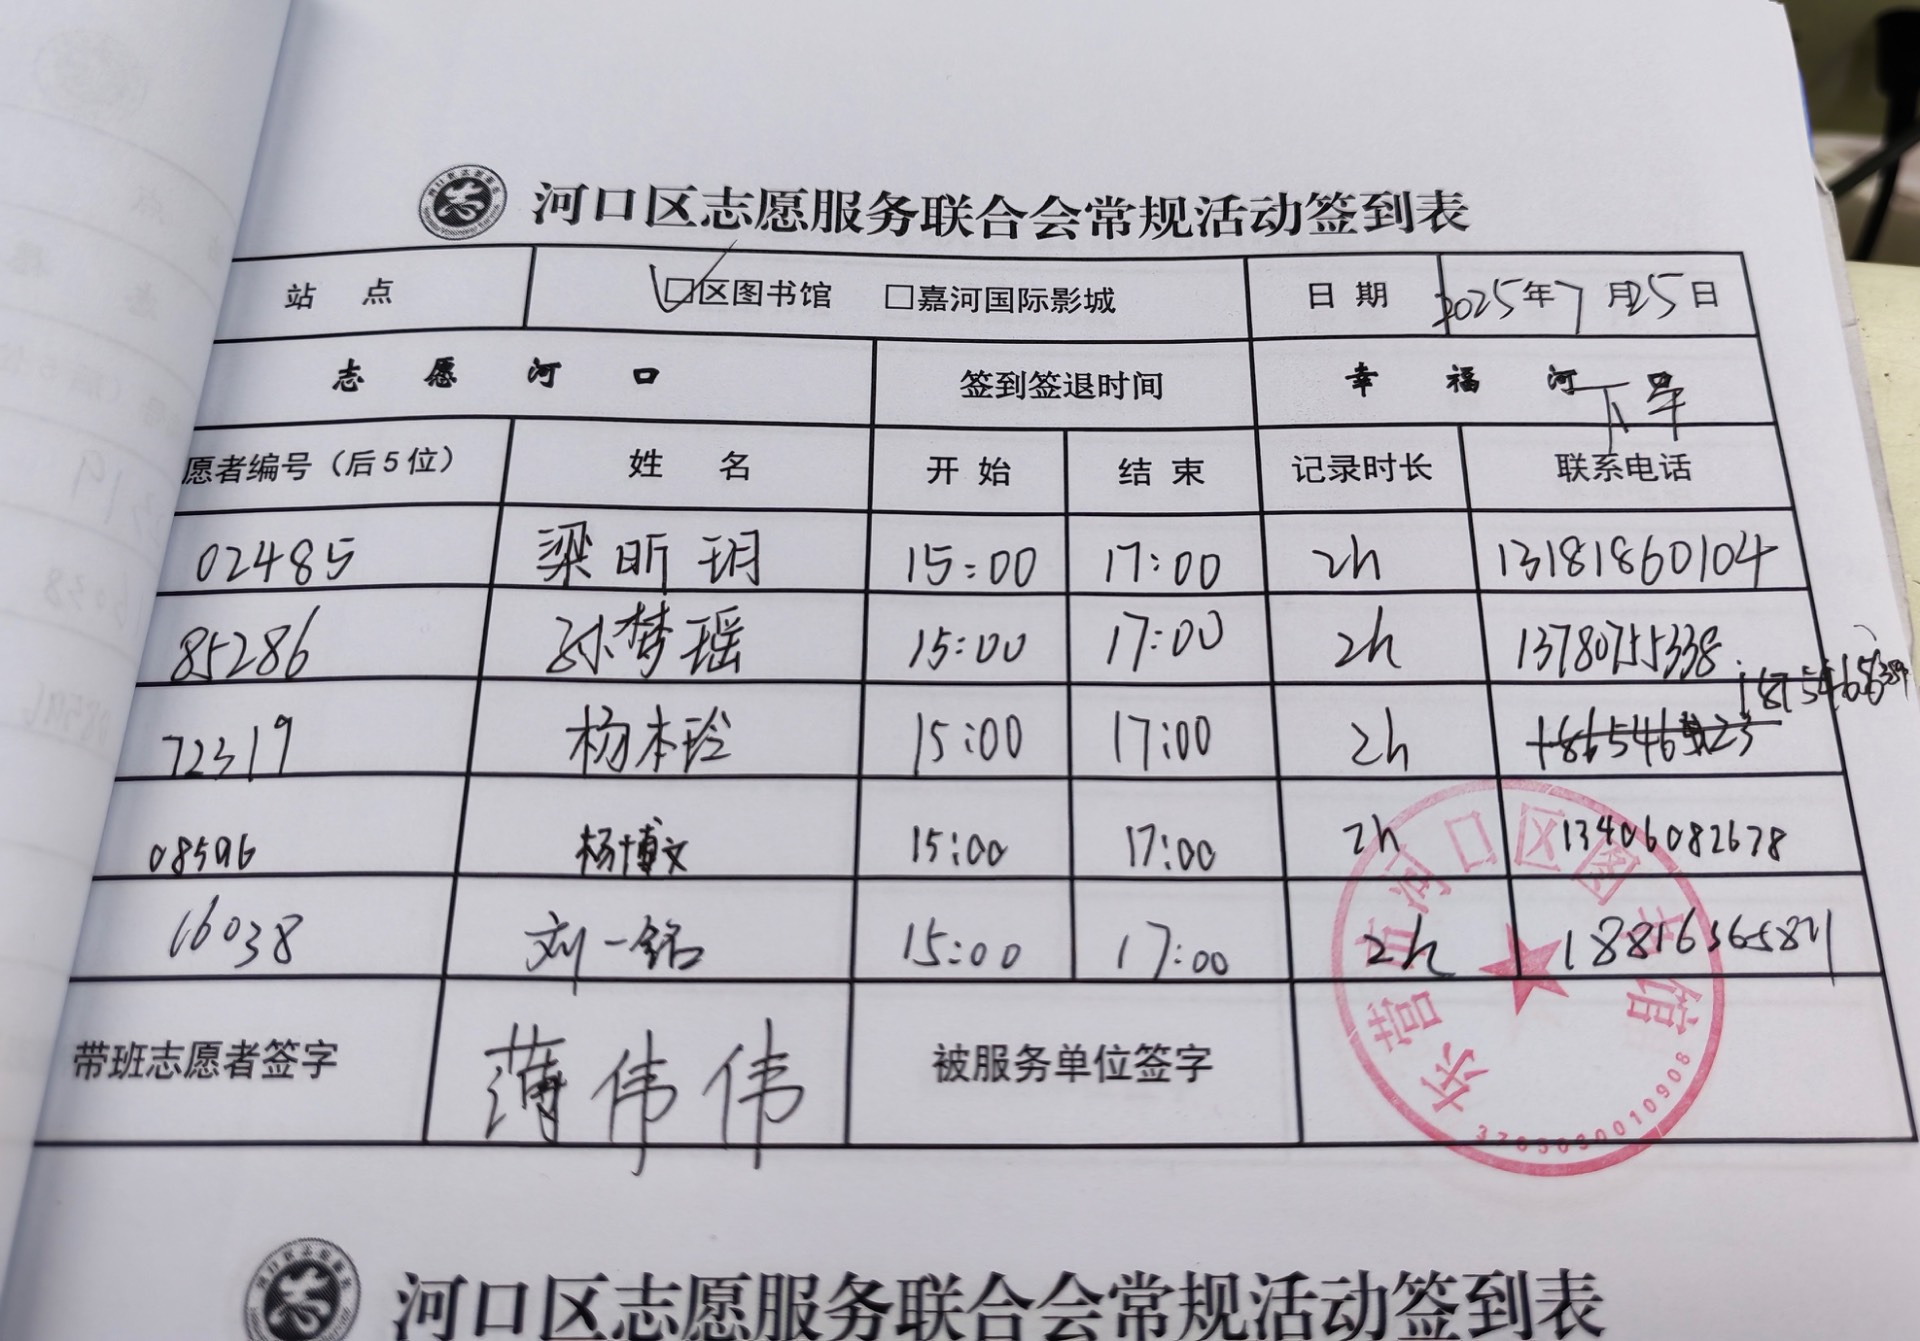 河口区志愿服务联合会常规活动签到表
站 点 □区图书馆 □嘉河国际影城 日 期 2025年7月25日
志 愿 河 口 签到签退时间 幸 福 河 口
下午
愿者编号（后5位） 姓 名 开 始 结 束 记录时长 联系电话
02485 梁昕玥 15:00 17:00 2h 13181860104
85286 孙梦瑶 15:00 17:00 2h 13780755338
72319 杨本玲 15:00 17:00 2h
08596 杨博文 15:00 17:00 2h 13406082678
16038 刘一铭 15:00 17:00 2h
带班志愿者签字 薄伟伟 被服务单位签字
东营市河口区图书馆
河口区志愿服务联合会常规活动签到表